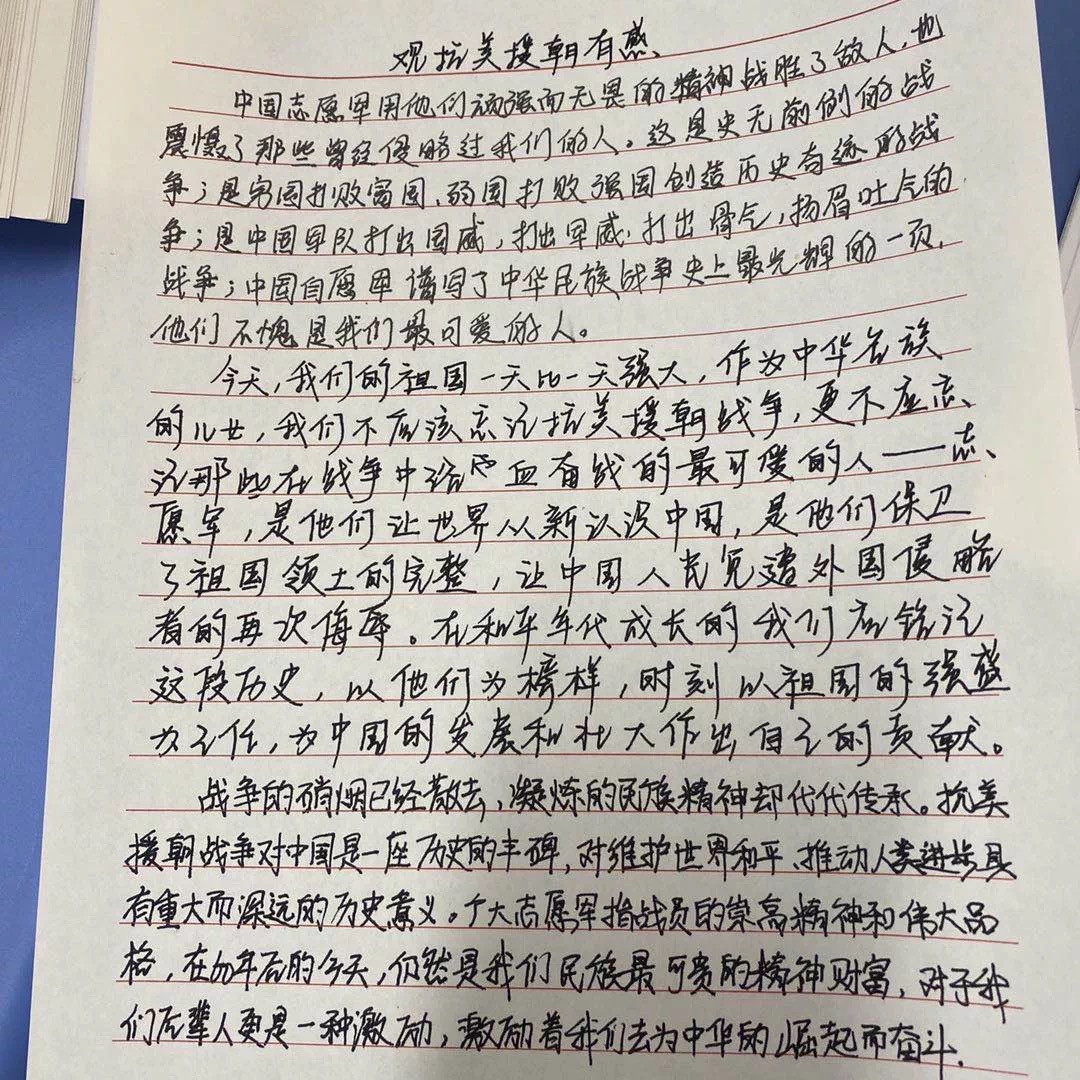 观抗美援朝有感
中国志愿军用他们顽强而无畏的精神战胜了敌人,也
震慑了那些曾经侵略过我们的人。这是史无前例的战
争;是穷国打败富国、弱国打败强国创造历史奇迹的战
争;是中国军队打出国威,打出军威,打出骨气,扬眉吐气的
战争;中国自愿军谱写了中华民族战争史上最光辉的一页,
他们不愧是我们最可爱的人。
今天,我们的祖国一天比一天强大,作为中华名族
的儿女,我们不应该忘记抗美援朝战争,更不应忘
记那些在战争中浴血奋战的最可爱的人——志
愿军,是他们让世界从新认识中国,是他们保卫
了祖国领土的完整,让中国人民免遭外国侵略
者的再次侮辱。在和平年代成长的我们应铭记
这段历史,以他们为榜样,时刻以祖国的强盛
为己任,为中国的发展和壮大作出自己的贡献。
战争的硝烟已经散去,凝炼的民族精神却代代传承。抗美
援朝战争对中国是一座历史的丰碑,对维护世界和平、推动人类进步具
有重大而深远的历史意义。广大志愿军指战员的崇高精神和伟大品
格,在60年后的今天,仍然是我们民族最可贵的精神财富,对于我
们后辈人更是一种激励,激励着我们去为中华的崛起而奋斗.